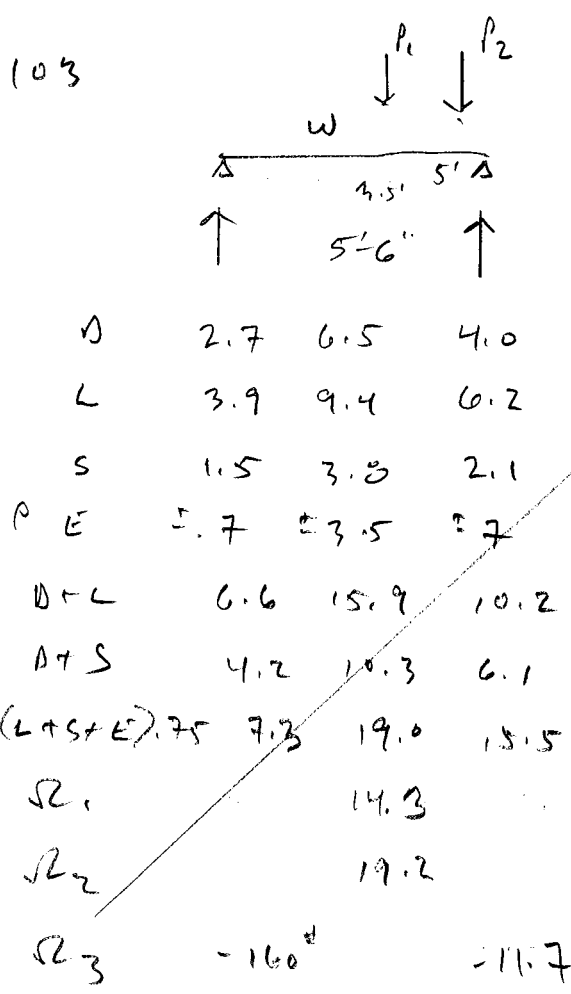 103
P₁ P₂
W
3.5' 5'
5'-6"
D 2.7 6.5 4.0
L 3.9 9.4 6.2
S 1.5 3.8 2.1
ρ E ±.7 ±3.5 ±7
D+L 6.6 15.9 10.2
D+S 4.2 10.3 6.1
(L+S+E).75 7.3 19.0 15.5
Ω₁ 14.3
Ω₂ 19.2
Ω₃ -160# -11.7